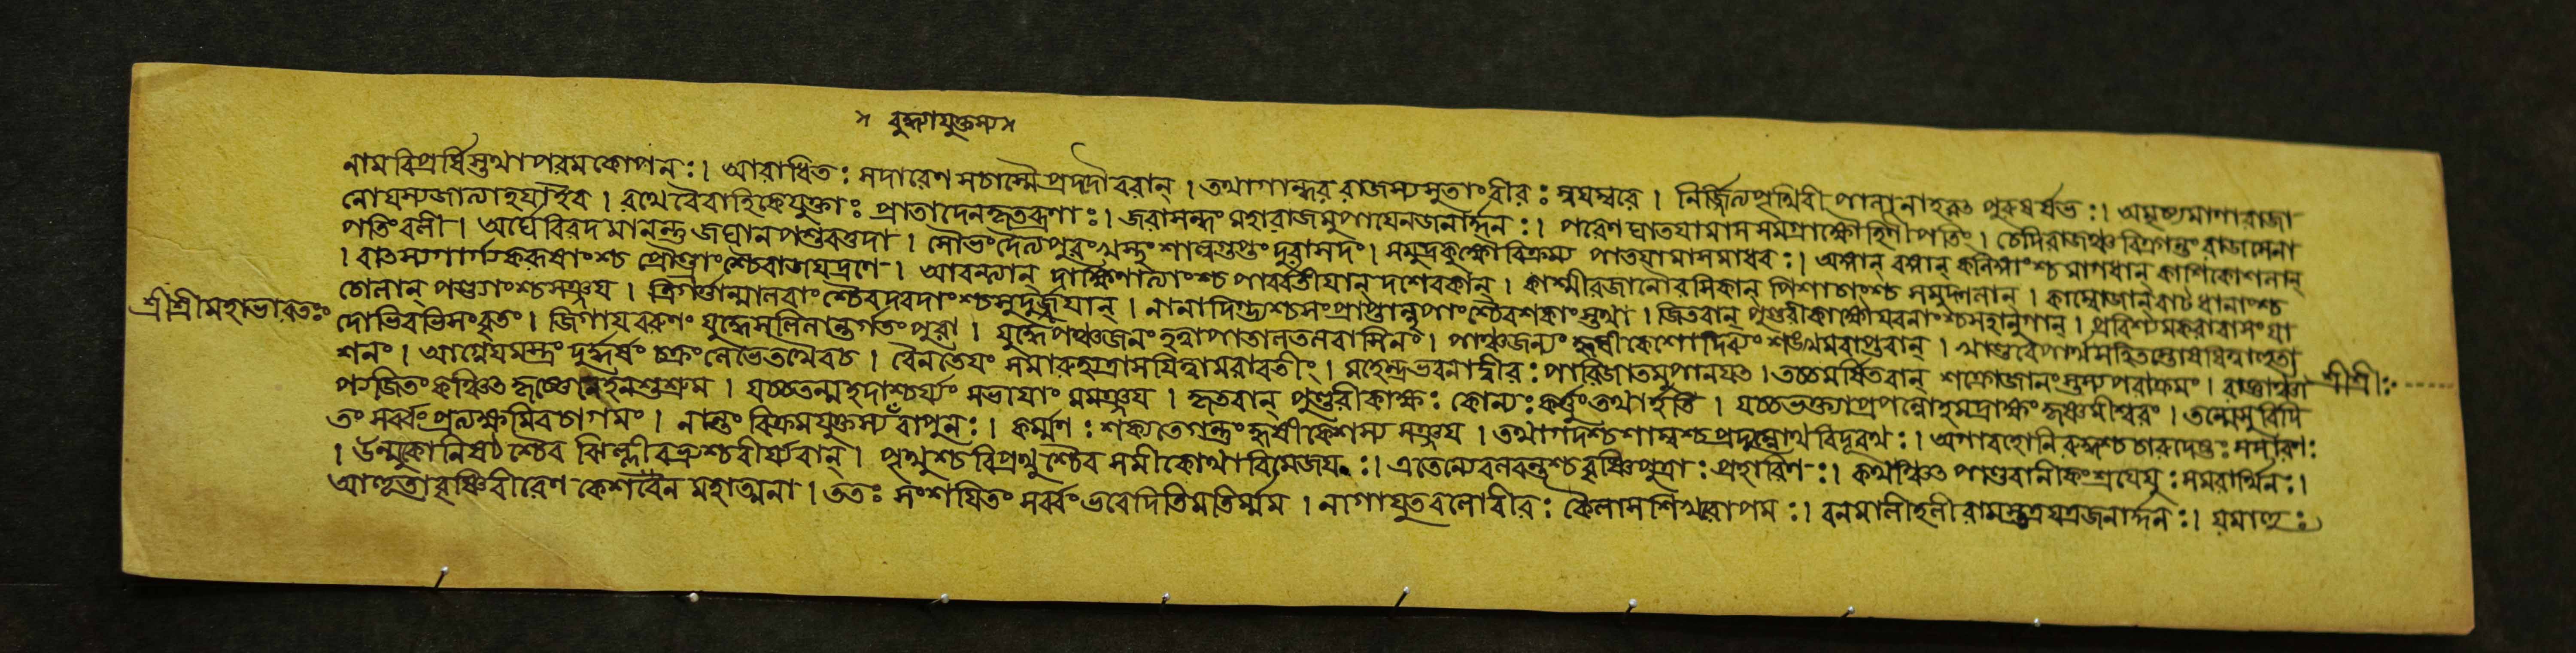 ব্রহ্মণ্যযুক্তস্য
নাম বিপ্রর্ষিস্তথা পরমকোপনঃ। আরাধিতঃ সদারেণ সচাস্মৈ প্রদদৌ বরান্। তথা গান্ধার রাজস্য সুতাং বীরঃ স্বয়ম্বরে। নির্জ্জিত্য পৃথিবী পালানাহরৎ পুরুষর্ষভঃ। অমৃষ্যমাণা রাজা
নোযস্য জাত্যা হযাইব। রথে বৈবাহিকেযুক্তাঃ প্রাতাদেন কৃতব্রণাঃ। জরাসন্ধং মহারাজমুপাযেন জনার্দ্দনঃ। পরেণ ঘাতযামাস সমগ্রাক্ষৌহিণীপতিং। চেদিরাজঞ্চ বিক্রান্তং রাজসেনা
পতিং বলী। অর্ঘে বিবদমানন্তু জঘান পশুবত্তদা। সৌভং দৈত্যপুরং খস্থং শাল্বগুপ্তং দুরাসদং। সমুদ্রকুক্ষৌ বিক্রম্য পাতযামাস মাধবঃ। অঙ্গান্ বঙ্গান্ কলিঙ্গাংশ্চ মাগধান্ কাশিকোশলান্
। বাৎস্য গার্গ্য করূষাংশ্চ পৌণ্ড্রাংশ্চৈবাজযদ্রণে। আবন্ত্যান্ দাক্ষিণাত্যাংশ্চ পার্ব্বতীযান্ দশেরকান্। কাশ্মীরজানৌরসিকান্ পিশাচাংশ্চ সমুদ্গলান্। কাম্বোজান্ বাটধানাংশ্চ
চোলান্ পাণ্ড্যাংশ্চ সঞ্জয। ত্রিগর্ত্তান্মালবাংশ্চৈব দরদাংশ্চ সুদুর্জ্জযান্। নানাদিগ্ভ্যশ্চ সংপ্রাপ্তান্নৃপাংশ্চৈব শকাংস্তথা। জিতবান্ পুণ্ডরীকাক্ষো যবনাংশ্চ সহানুগান্। প্রবিশ্য মকরাবাসং যা
শ্রীশ্রীমহাভারতঃ
দোভিরভিসংবৃতং। জিগায বরুণং যুদ্ধে সলিলান্তর্গতং পুরা। যুদ্ধে পঞ্চজনং হত্বা পাতালতলবাসিনং। পাঞ্চজন্যং হৃষীকেশো দিব্যং শঙ্খমবাপ্তবান্। খাণ্ডবে পার্থসহিতস্তোষযিত্বা হুতা
শনং। আগ্নেযমস্ত্রং দুর্দ্ধর্ষং চক্রং লেভে তথৈবচ। বৈনতেযং সমারুহ্য ত্রাসযিত্বামরাবতীং। মহেন্দ্রভবনাদ্বীরঃ পারিজাতমুপানযৎ। তচ্চমর্ষিতবান্ শক্রো জানংস্তস্য পরাক্রমং। রাজ্ঞাঞ্চা
শ্রীশ্রীঃ
প্যজিতং কঞ্চিৎ কৃষ্ণেনেহ ন শুশ্রুম। যচ্চ তন্মহদাশ্চর্য্যং সভাযাং মম সঞ্জয। কৃতবান্ পুণ্ডরীকাক্ষঃ কোন্যঃ কর্ত্তুং তথার্হতি। যচ্চ ভক্ত্যা প্রপন্নোহমদ্রাক্ষং কৃষ্ণমীশ্বরং। তন্মে সুবিদি
তং সর্ব্বং প্রত্যক্ষমিব চাগমং। নান্তং বিক্রমযুক্তস্য বা পুনঃ। কর্ম্মণঃ শক্যতে গন্তুং হৃষীকেশস্য সঞ্জয। তথা গদশ্চ শাম্বশ্চ প্রদ্যুম্নোথ বিদূরথঃ। অগাবহোনিরুদ্ধশ্চ চারুদেষ্ণঃ সসারণঃ
। উল্মুকো নিষঠশ্চৈব ঝিল্লীবভ্রুশ্চ বীর্য্যবান্। পৃথুশ্চ বিপৃথুশ্চৈব সমীকোথারিমেজযঃ। এতেন্যে বলবন্তশ্চ বৃষ্ণিপুত্রাঃ প্রহারিণঃ। কথঞ্চিৎ পাণ্ডবানীকং শ্রযেযুঃ সমরার্থিনঃ।
আহূতা বৃষ্ণিবীরেণ কেশবেন মহাত্মনা। ততঃ সংশযিতং সর্ব্বং ভবেদিতি মতির্ম্মম। নাগাযুতবলো বীরঃ কৈলাসশিখরোপমঃ। বনমালী হলী রামস্তত্র যত্র জনার্দ্দনঃ। যমাহুঃ